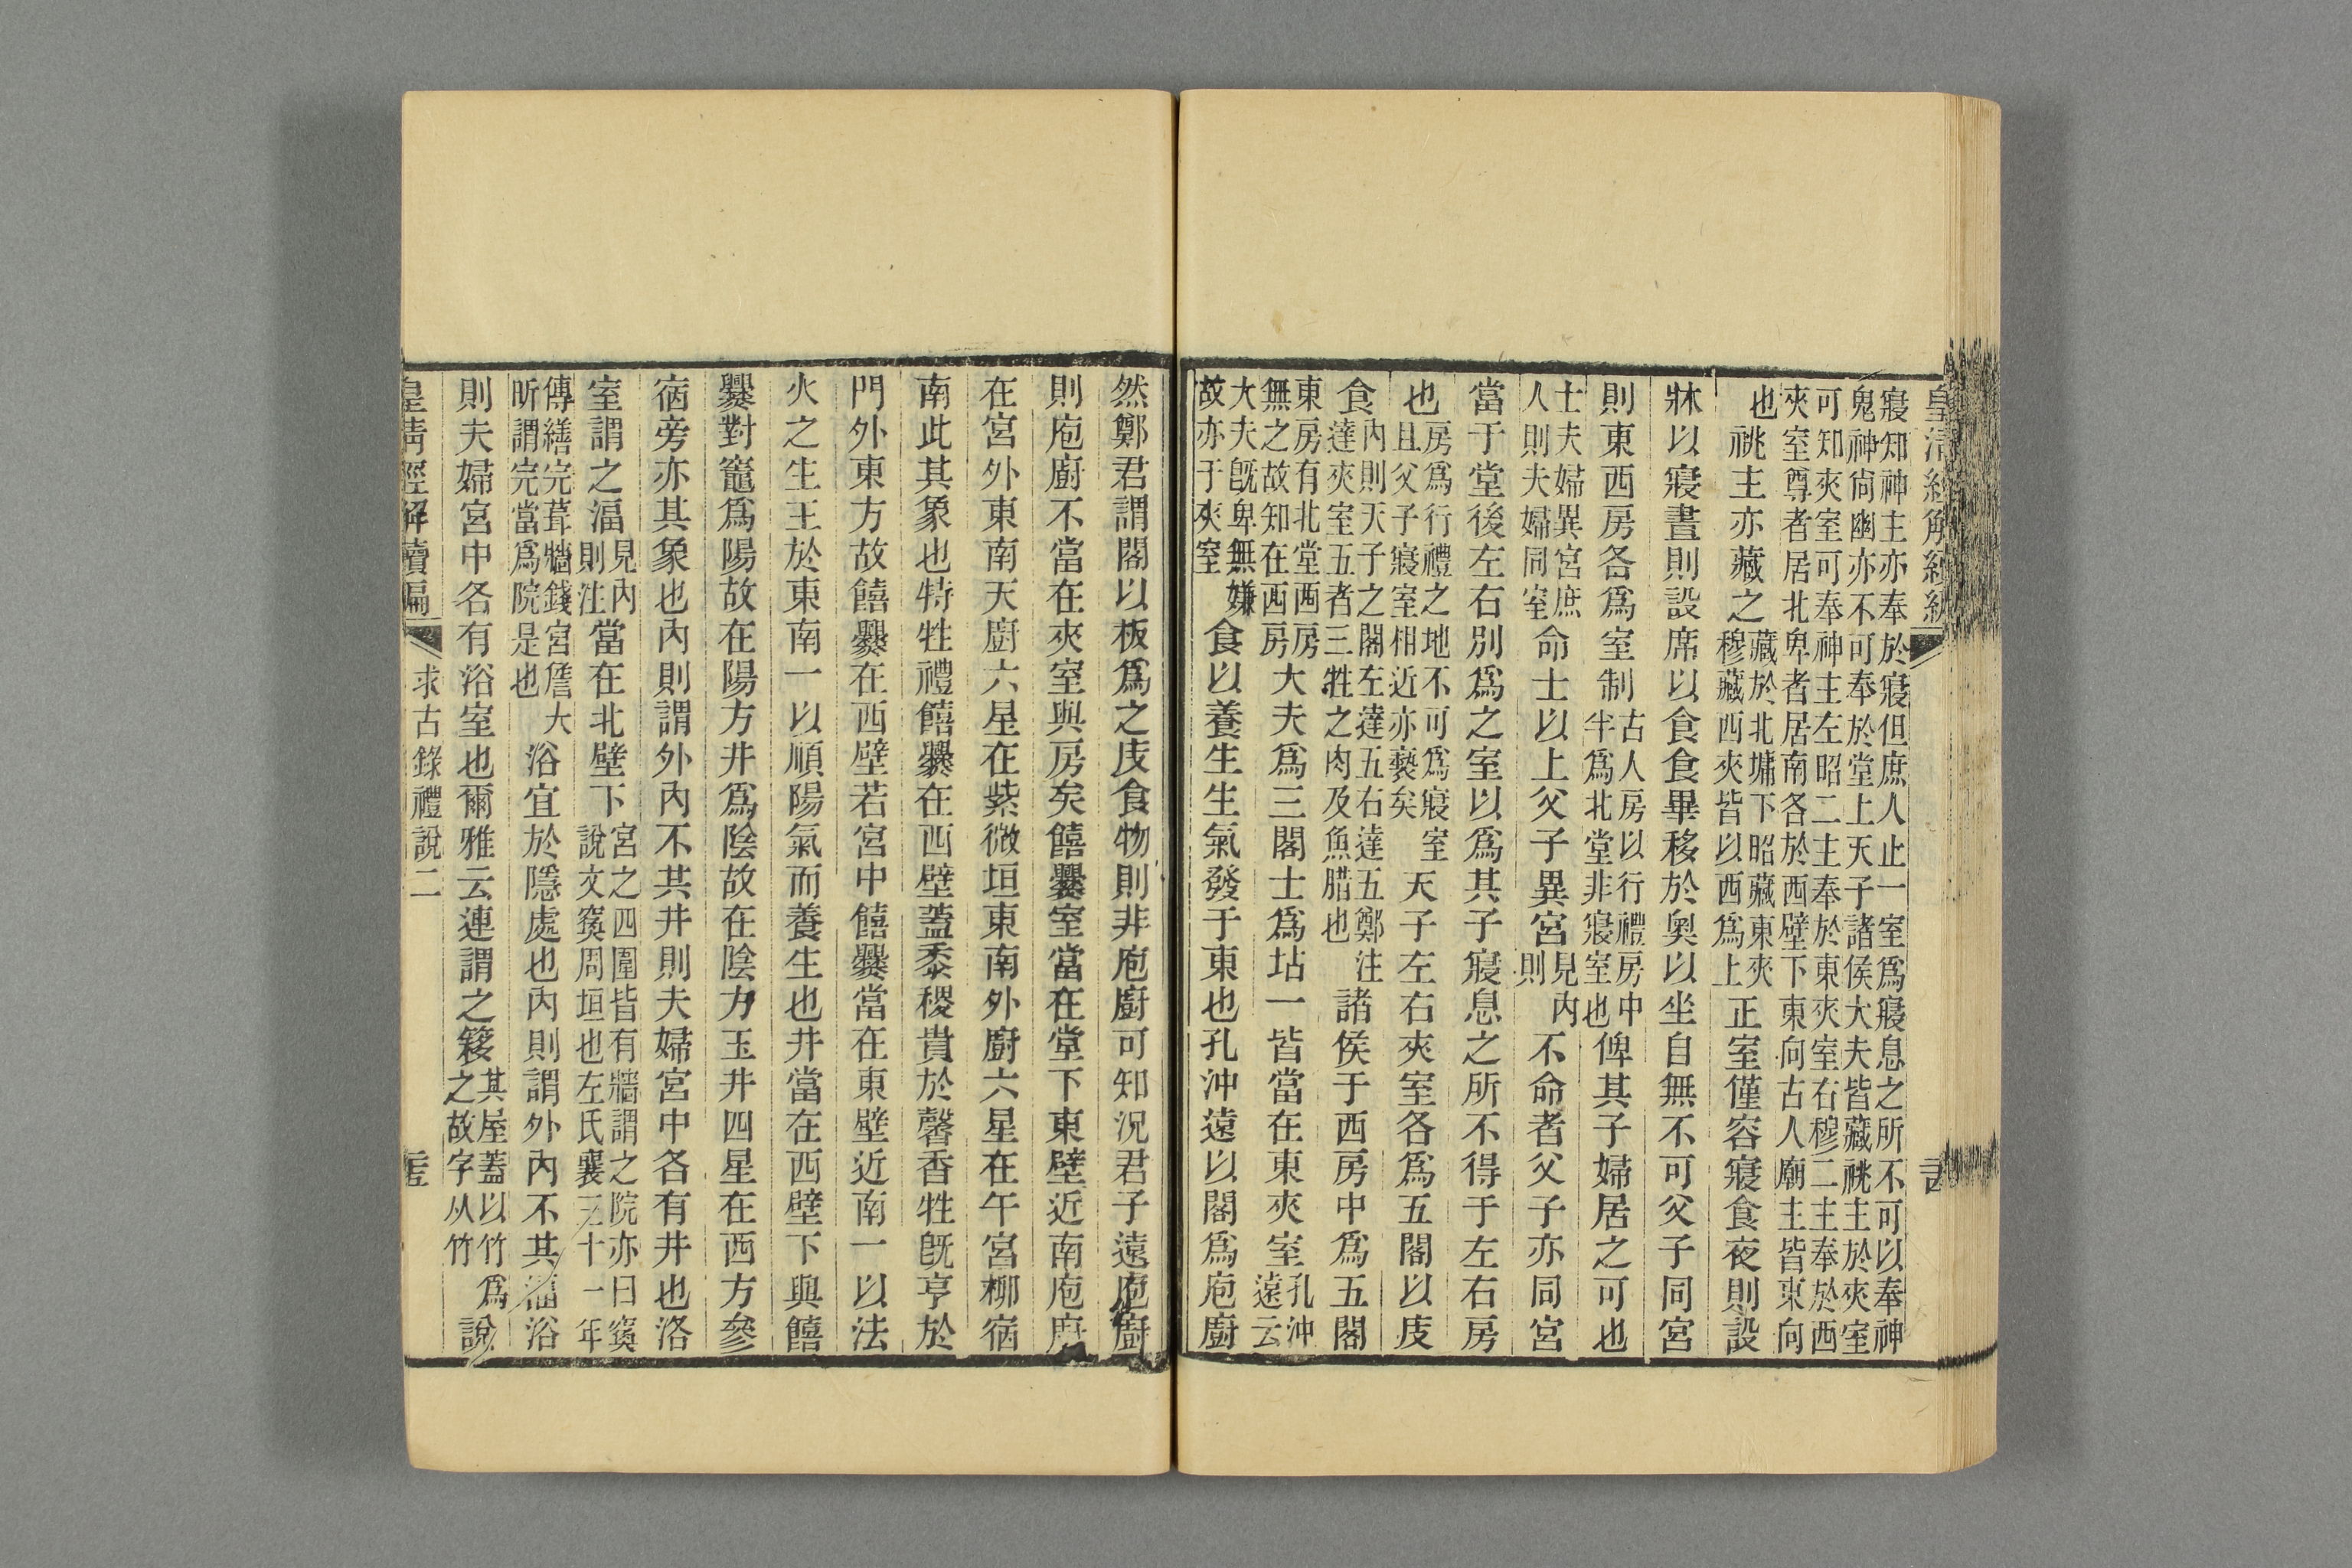 皇清經解續編
寢知神主亦奉於寢但庶人止一室爲寢息之所不可以奉神
鬼神尙幽亦不可奉於堂上天子諸侯大夫皆藏祧主於夾室
可知夾室可奉神主左昭二主奉於東夾室右穆二主奉於西
夾室尊者居北卑者居南各於西壁下東向古人廟主皆東向
也
祧主亦藏之
藏於北墉下昭藏東夾
穆藏西夾皆以西爲上
正室僅容寢食夜則設
牀以寢晝則設席以食食畢移於奧以坐自無不可父子同宮
則東西房各爲室制
古人房以行禮房中
半爲北堂非寢室也
俾其子婦居之可也
士夫婦異宮庶
人則夫婦同室
命士以上父子異宮
見內
則
不命者父子亦同宮
當于堂後左右別爲之室以爲其子寢息之所不得于左右房
也
房爲行禮之地不可爲寢室
且父子寢室相近亦褻矣
天子左右夾室各爲五閣以庋
食
內則天子之閣左達五右達五鄭注
達夾室五者三牲之肉及魚腊也
諸侯于西房中爲五閣
東房有北堂西房
無之故知在西房
大夫爲三閣士爲坫一皆當在東夾室
孔沖
遠云
大夫旣卑無嫌
故亦于夾室
食以養生生氣發于東也孔沖遠以閣爲庖廚
然鄭君謂閣以板爲之庋食物則非庖廚可知況君子遠庖廚
則庖廚不當在夾室與房矣饎爨室當在堂下東壁近南庖廚
在宮外東南天廚六星在紫微垣東南外廚六星在午宮柳宿
南此其象也特牲禮饎爨在西壁蓋黍稷貴於馨香牲旣亨於
門外東方故饎爨在西壁若宮中饎爨當在東壁近南一以法
火之生王於東南一以順陽氣而養生也井當在西壁下與饎
爨對竈爲陽故在陽方井爲陰故在陰方玉井四星在西方參
宿旁亦其象也內則謂外內不共井則夫婦宮中各有井也洛
室謂之湢
見內
則注
當在北壁下
宮之四圍皆有牆謂之院亦曰寏
說文寏周垣也左氏襄三十一年
傳繕完葺牆錢宮詹大
昕謂完當爲院是也
浴宜於隱處也內則謂外內不共湢浴
則夫婦宮中各有浴室也爾雅云連謂之簃
其屋蓋以竹爲
之故字从竹
說
皇清經解續編
求古錄禮說二